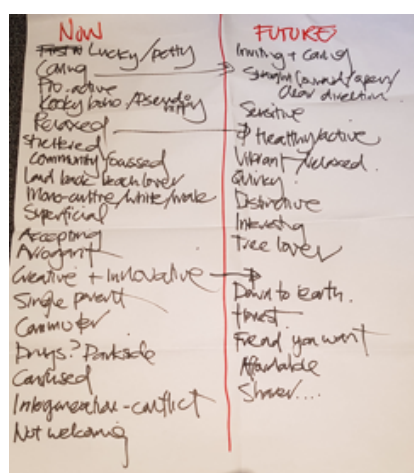 NOW
Lucky/petty
Caring
Pro.active
Relaxed
Sheltered
Community focussed
Laid back beach lover
Mono-culture/white/male
Superficial
Accepting
Arrogant
Creative + Innovative
Single parent
Commuter
Drugs? Darkside
Confused
Intergeneration-conflict
Not welcoming
FUTURE
Inviting + caring
Straight forward/open/
clear direction
Sensitive
Healthy/active
Vibrant/relaxed.
Quirky.
Distinctive
Interesting
Tree lover
Down to earth.
Honest
Friend you want
Affordable
Sharer....